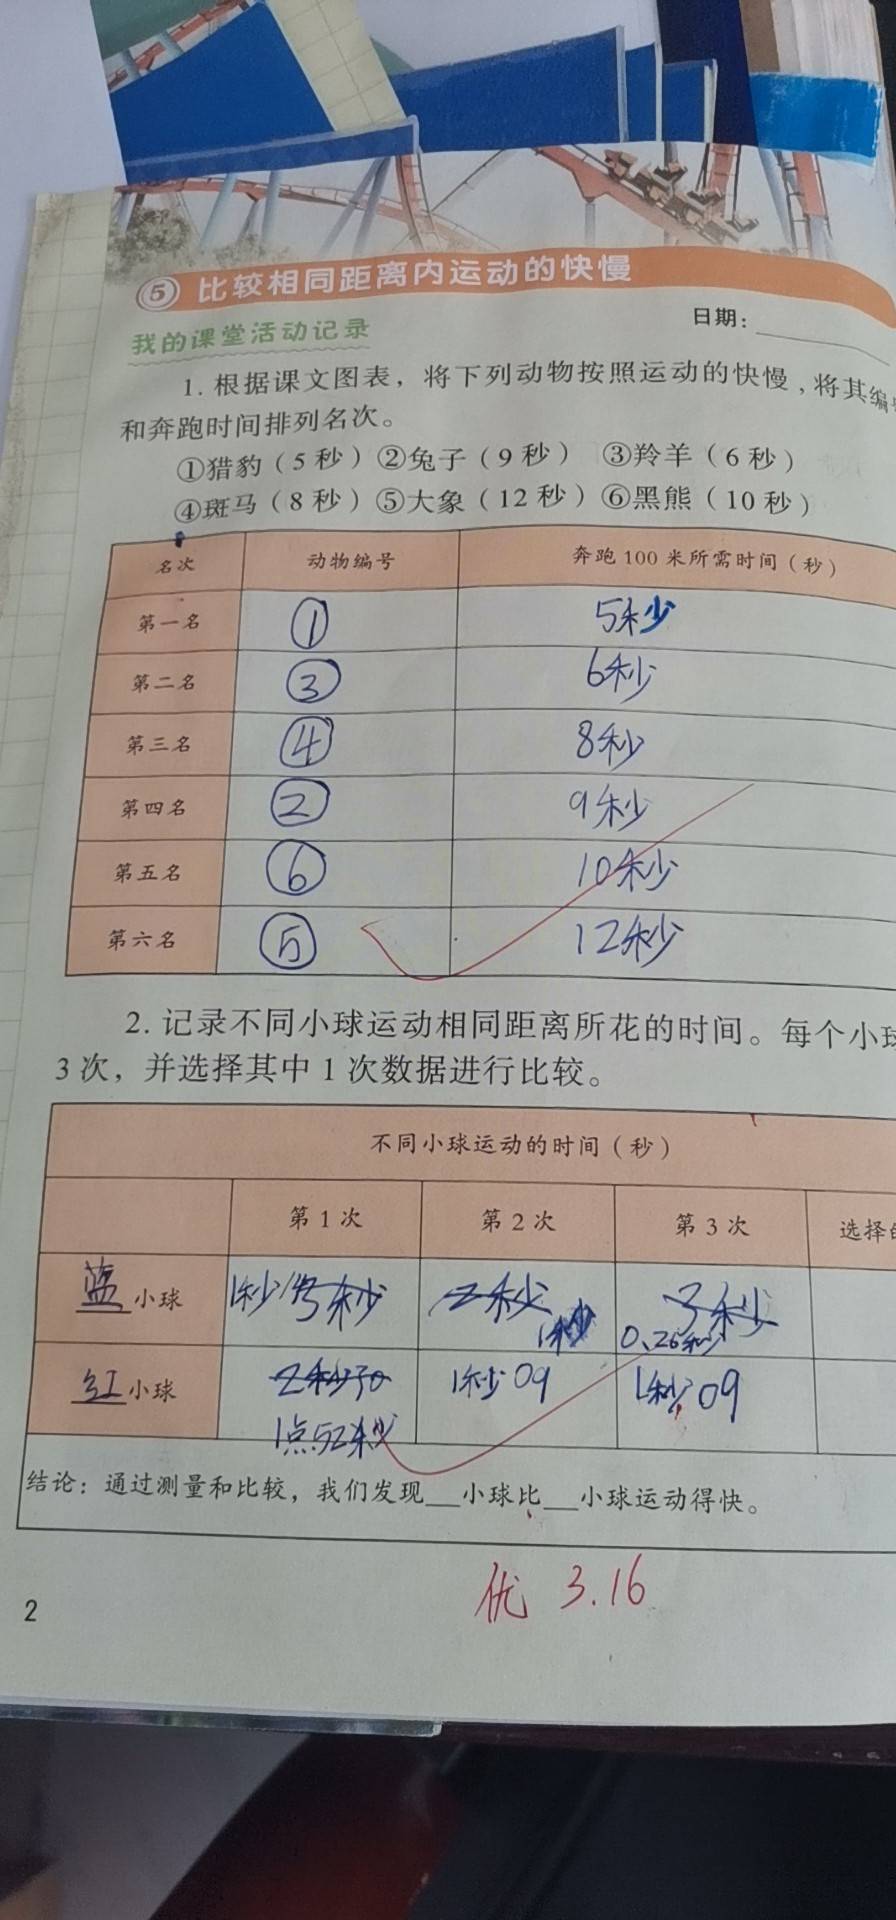 ⑤ 比较相同距离内运动的快慢
我的课堂活动记录
日期：
1. 根据课文图表，将下列动物按照运动的快慢，将其编
和奔跑时间排列名次。
①猎豹（5 秒）②兔子（9 秒） ③羚羊（6 秒）
④斑马（8 秒）⑤大象（12 秒）⑥黑熊（10 秒）
名次 动物编号 奔跑 100 米所需时间（秒）
第一名 ① 5秒
第二名 ③ 6秒
第三名 ④ 8秒
第四名 ② 9秒
第五名 ⑥ 10秒
第六名 ⑤ 12秒
2. 记录不同小球运动相同距离所花的时间。每个小球
3 次，并选择其中 1 次数据进行比较。
不同小球运动的时间（秒）
第 1 次 第 2 次 第 3 次 选择
蓝小球 1秒 2秒 3秒
1秒 0.26秒
红小球 2秒30 1秒09 1秒09
1点52秒
结论：通过测量和比较，我们发现___小球比___小球运动得快。
优 3.16
2